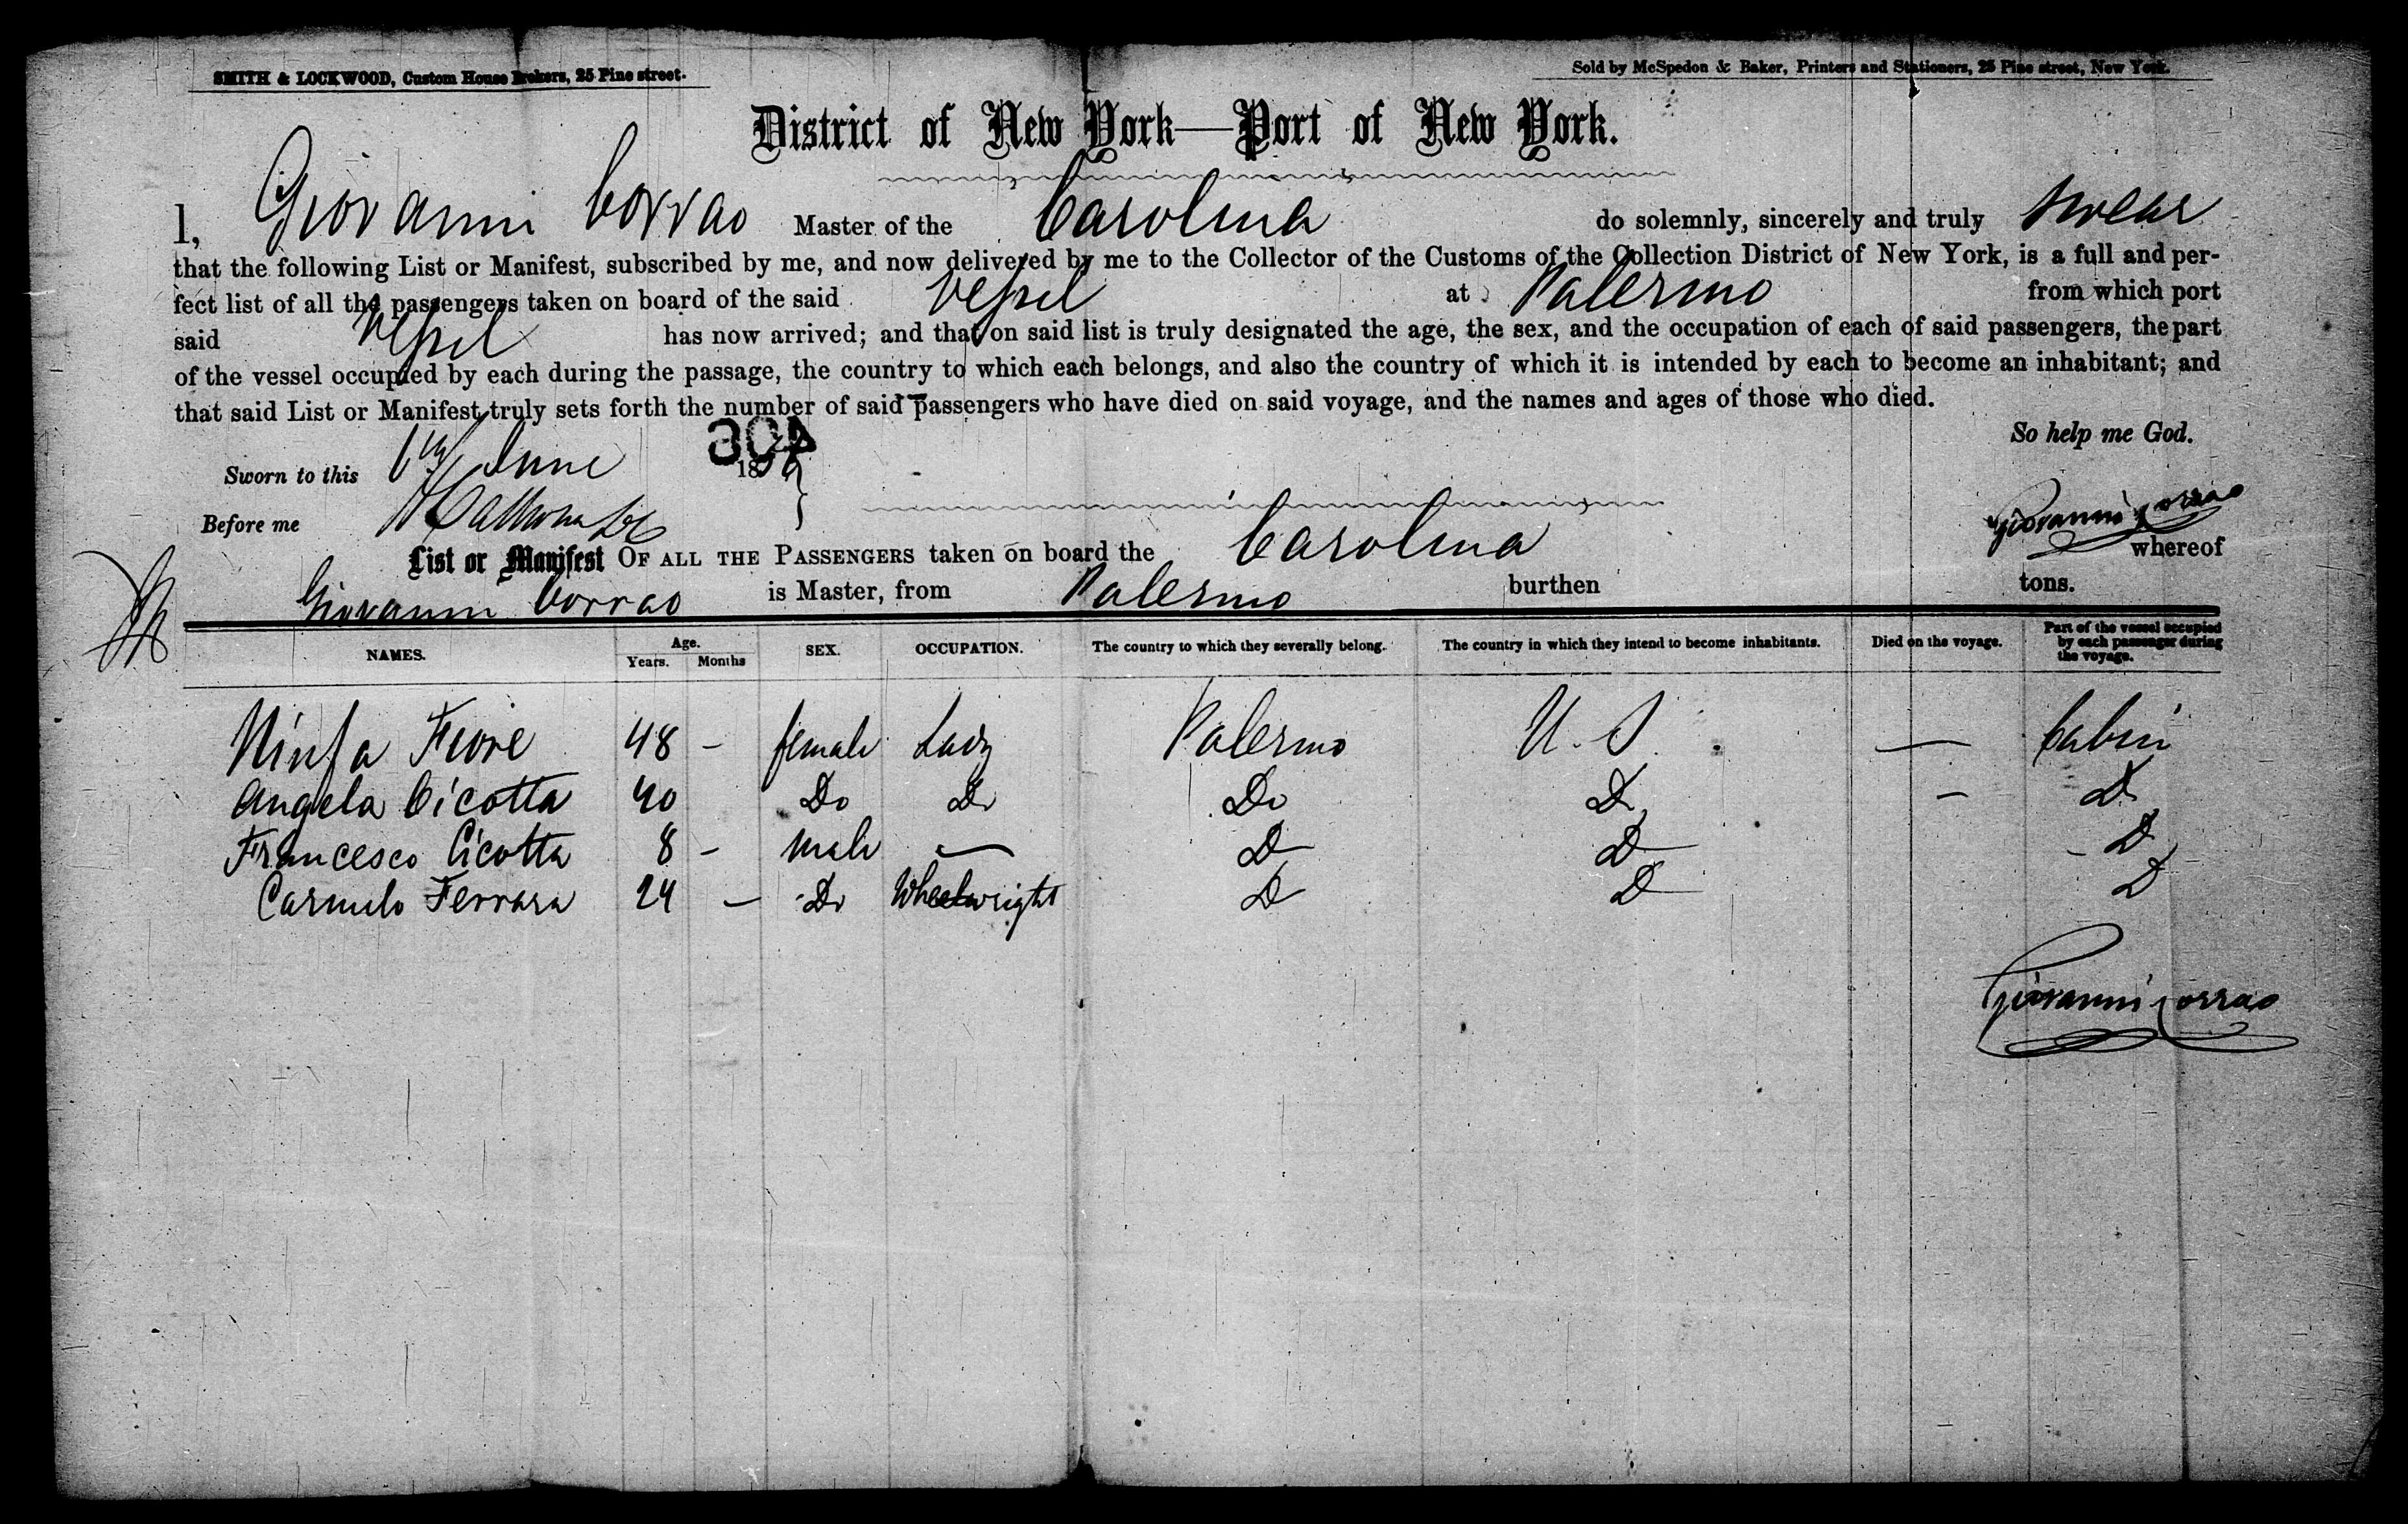 SMITH & LOCKWOOD, Custom House Brokers, 25 Pine street.
Sold by McSpedon & Baker, Printers and Stationers, 25 Pine street, New York.
District of New York—Port of New York.
I, Giovanni Corrao Master of the Carolina do solemnly, sincerely and truly swear
that the following List or Manifest, subscribed by me, and now delivered by me to the Collector of the Customs of the Collection District of New York, is a full and per-
fect list of all the passengers taken on board of the said vessel at Palermo from which port
said vessel has now arrived; and that on said list is truly designated the age, the sex, and the occupation of each of said passengers, the part
of the vessel occupied by each during the passage, the country to which each belongs, and also the country of which it is intended by each to become an inhabitant; and
that said List or Manifest truly sets forth the number of said passengers who have died on said voyage, and the names and ages of those who died.
So help me God.
304
Sworn to this June 18
Before me
Giovanni Corrao
List or Manifest OF ALL THE PASSENGERS taken on board the Carolina whereof
Giovanni Corrao is Master, from Palermo burthen tons.
NAMES. Age. Years. Months SEX. OCCUPATION. The country to which they severally belong. The country in which they intend to become inhabitants. Died on the voyage. Part of the vessel occupied by each passenger during the voyage.
Ninfa Fiore 48 - female Lady Palermo U. S. — Cabin
Angela Cicotta 40 Do Do Do Do - Do
Francesco Cicotta 8 - male — Do Do - Do
Carmelo Ferrara 24 — Do Wheelwright Do Do Do
Giovanni Corrao